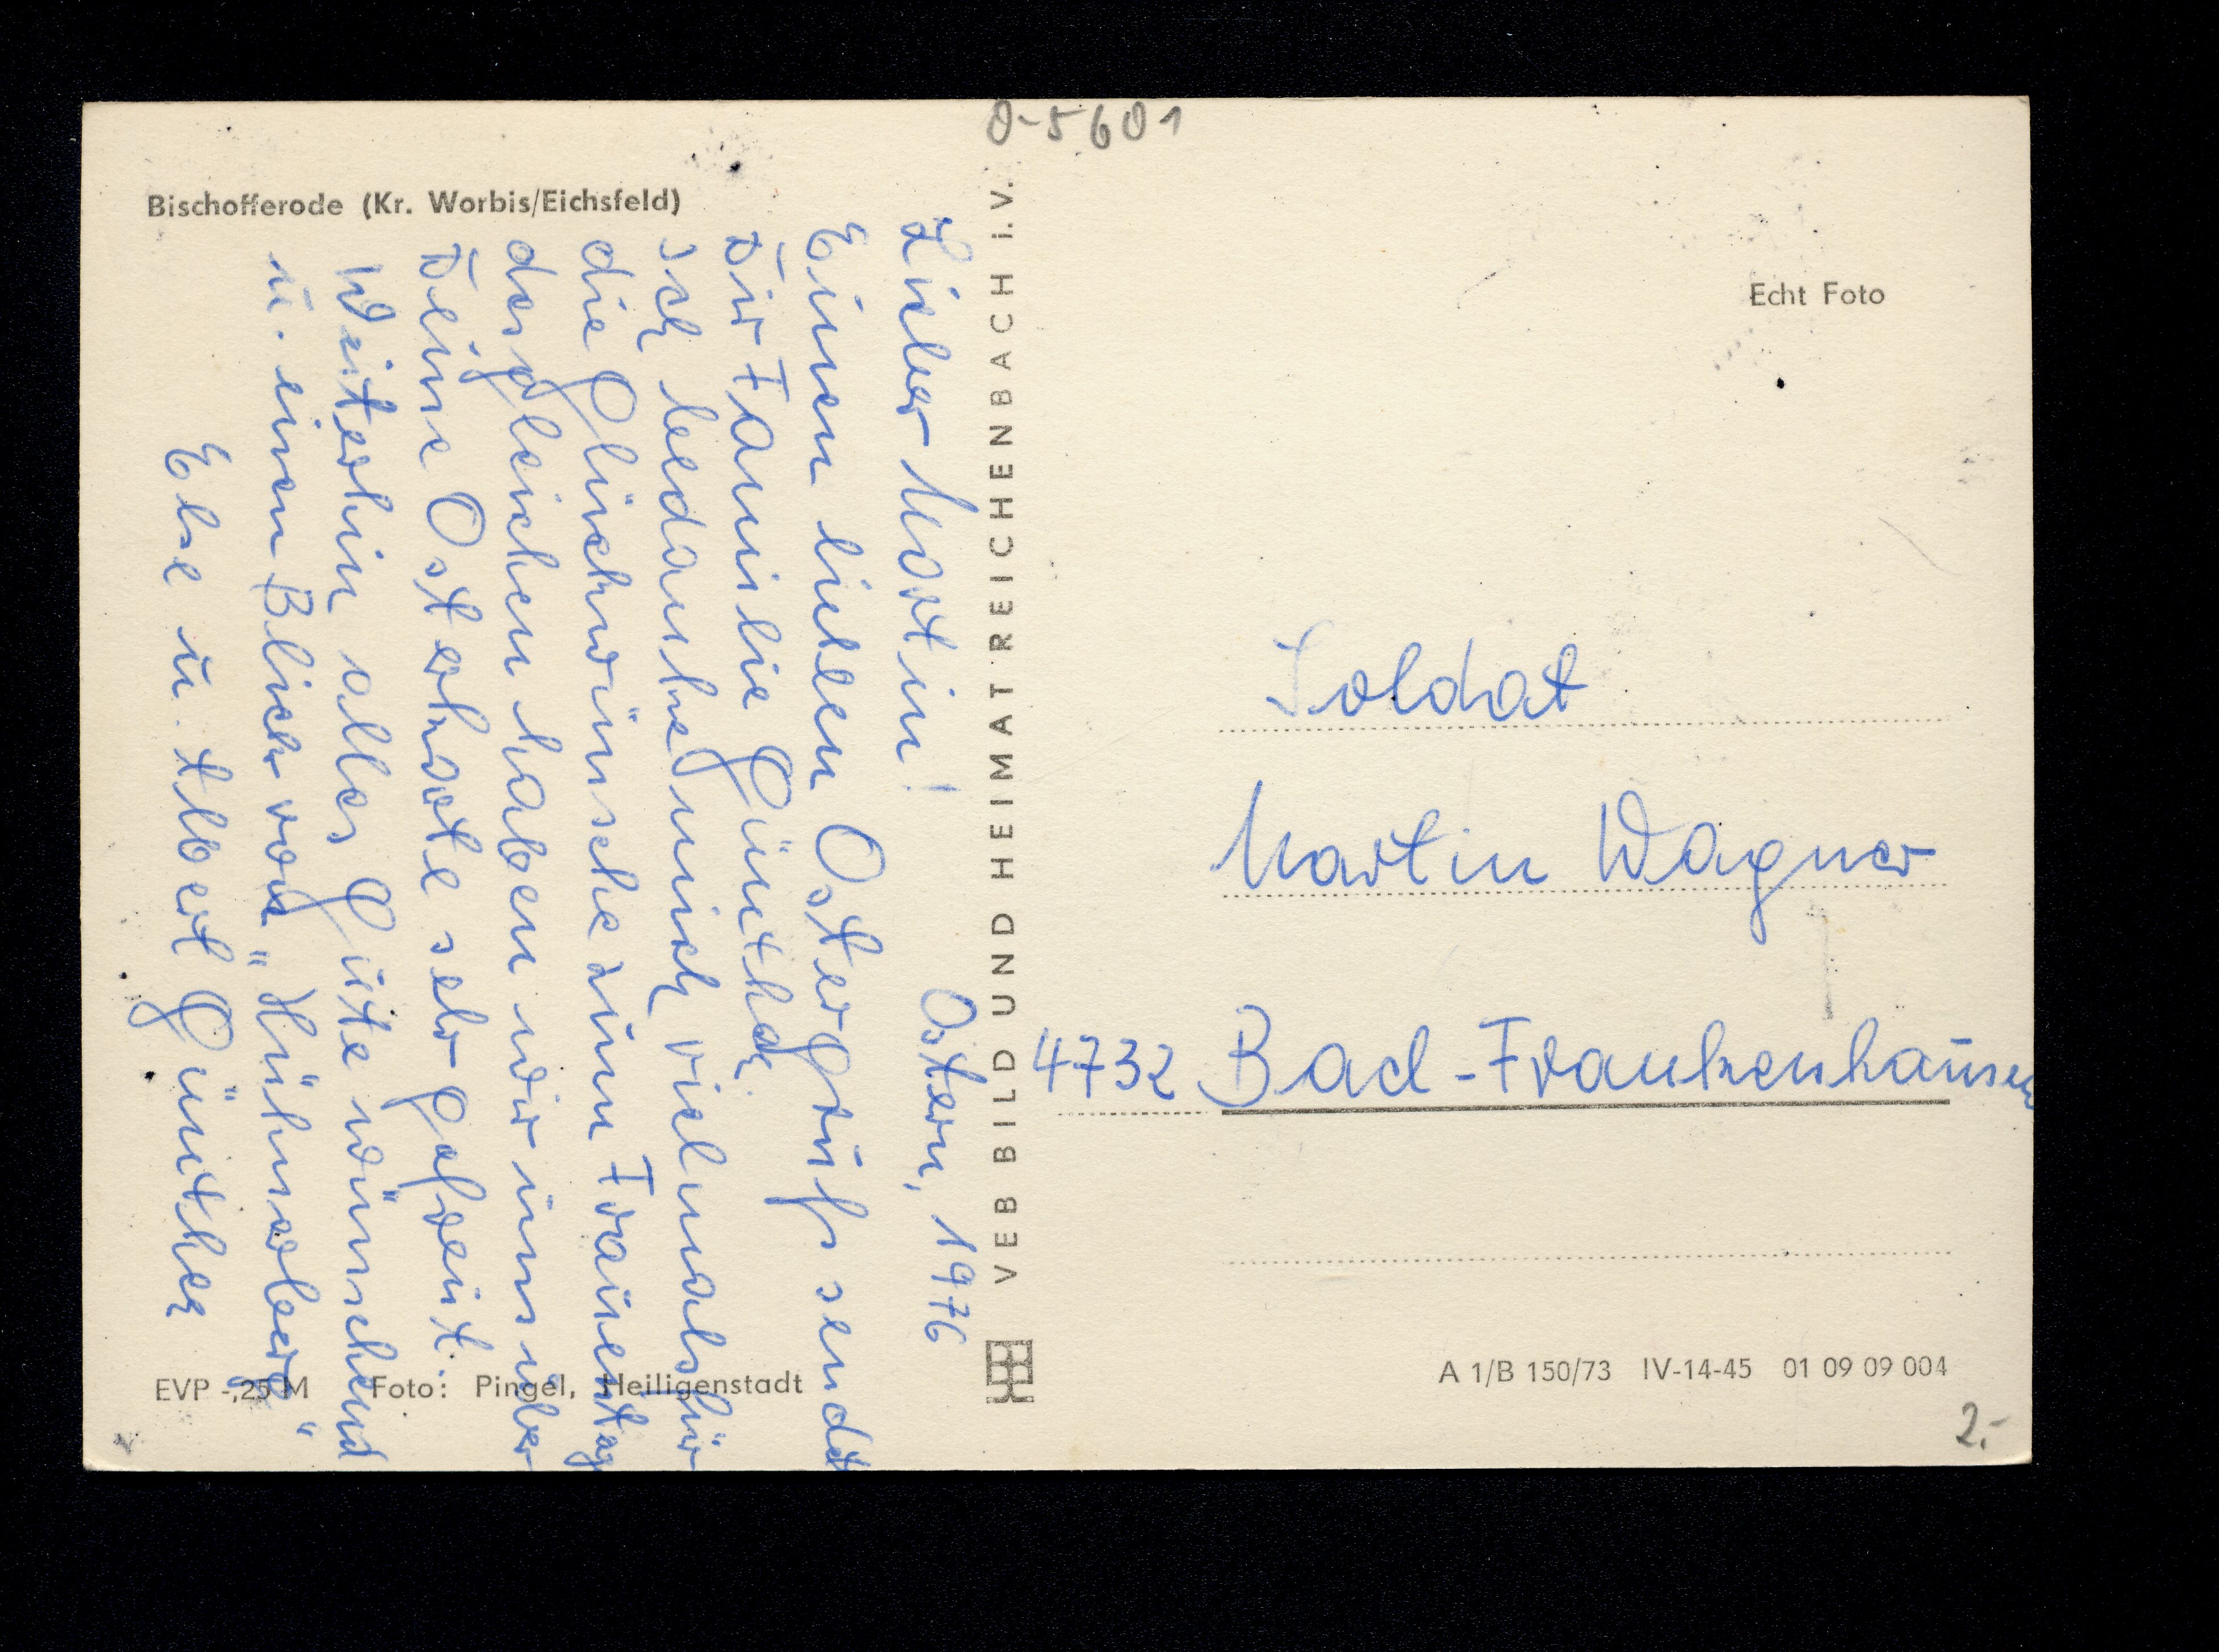 O-5601
Bischofferode (Kr. Worbis/Eichsfeld)
Ostern, 1976
Lieber Martin!
Einen lieben Ostergruß sendt
Dir Familie Günther.
Ich bedanke mich vielmals für
die Glückwünsche zum Frauentag
desgleichen haben wir uns über
Deine Osterkarte sehr gefreut.
Weiterhin alles Gute wünschend
u. einen Blick von
Else u. Albert Günther
EVP -,25 M Foto: Pingel, Heiligenstadt
VEB BILD UND HEIMAT REICHENBACH i.V.
Echt Foto
Soldat
Martin Wagner
4732 Bad-Frankenhausen
A 1/B 150/73 IV-14-45 01 09 09 004
2.-